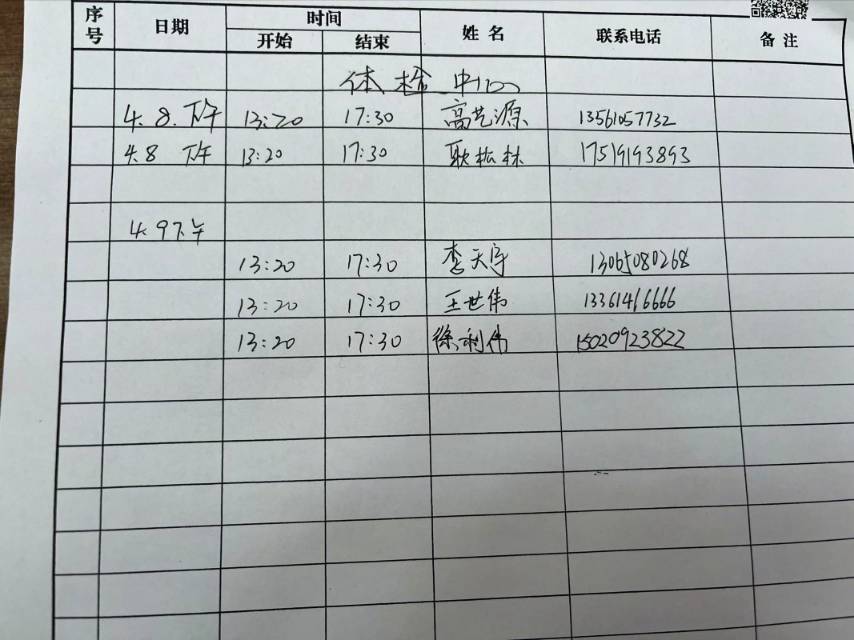 序号 日期 时间 姓名 联系电话 备注
开始 结束
体检中心
4.8.下午 13:20 17:30 高艺源 13561057732
4.8 下午 13:20 17:30 耿松林 17519193893
4.9下午
13:20 17:30 李天宇 13065080268
13:20 17:30 王世伟 13361416666
13:20 17:30 徐利伟 15020923822